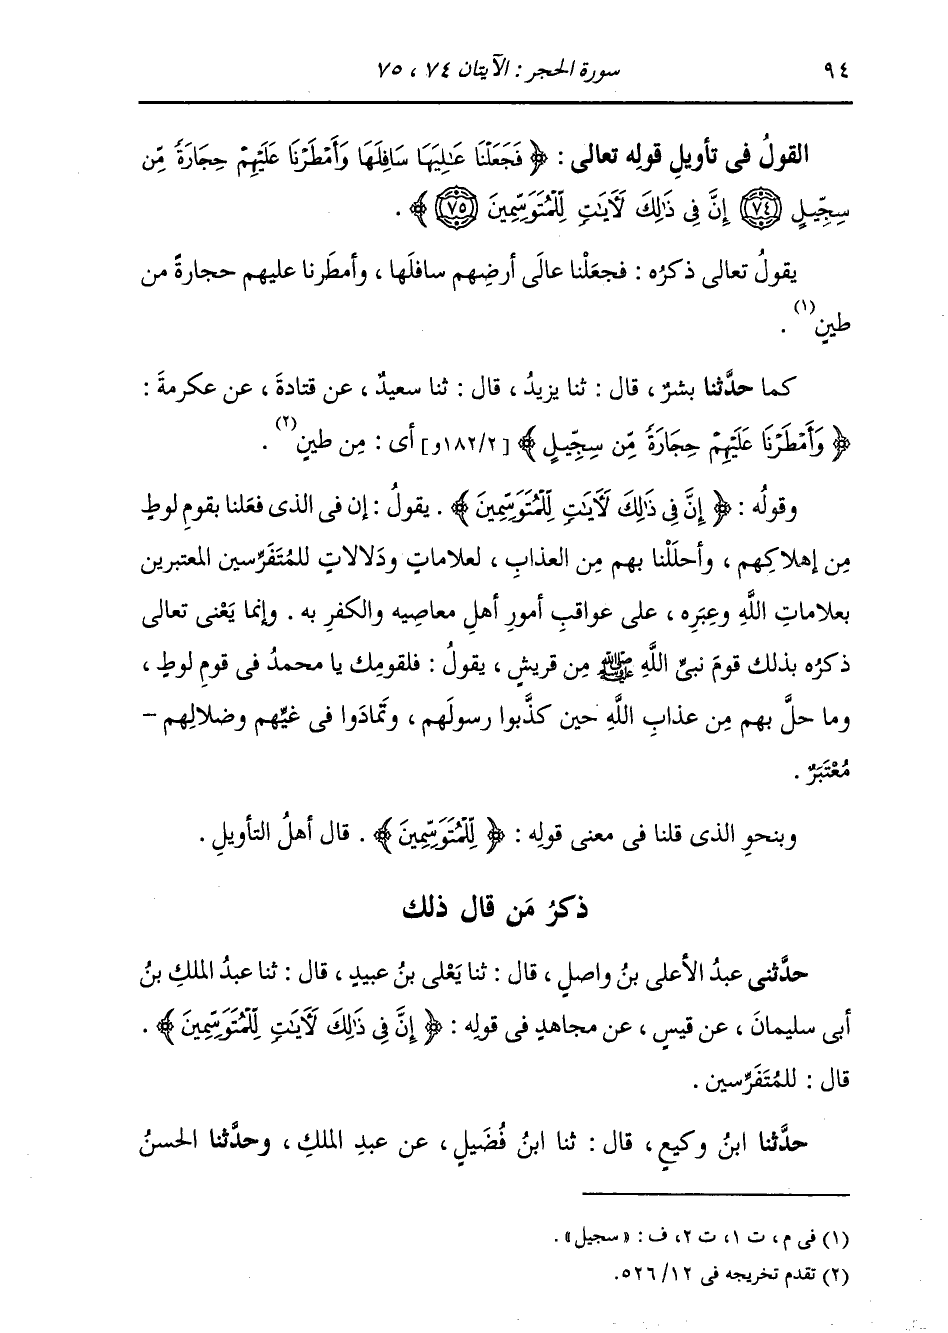 ٩٤ سورة الحجر : الآيتان ٧٤ ، ٧٥
القولُ فى تأويلِ قولِه تعالى : ﴿ فَجَعَلْنَا عَٰلِيَهَا سَافِلَهَا وَأَمْطَرْنَا عَلَيْهِمْ حِجَارَةً مِّن
سِجِّيلٍ ﴿٧٤﴾ إِنَّ فِى ذَٰلِكَ لَآيَٰتٍ لِّلْمُتَوَسِّمِينَ ﴿٧٥﴾ ﴾ .
يقولُ تعالى ذكرُه : فجعَلْنا عالَى أرضِهم سافلَها ، وأمطَرنا عليهم حجارةً من
طينٍ(١) .
كما حدَّثنا بشرٌ ، قال : ثنا يزيدُ ، قال : ثنا سعيدٌ ، عن قتادةَ ، عن عكرمةَ :
﴿ وَأَمْطَرْنَا عَلَيْهِمْ حِجَارَةً مِّن سِجِّيلٍ ﴾ [ ١٨٢/٢و] أى : مِن طينٍ(٢) .
وقولُه : ﴿ إِنَّ فِى ذَٰلِكَ لَآيَٰتٍ لِّلْمُتَوَسِّمِينَ ﴾ . يقولُ : إن فى الذى فعَلنا بقومِ لوطٍ
مِن إهلاكِهم ، وأحلَلْنا بهم مِن العذابِ ، لعلاماتٍ ودَلالاتٍ للمُتَفَرِّسين المعتبرين
بعلاماتِ اللَّهِ وعِبَرِه ، على عواقبِ أمورِ أهلِ معاصِيه والكفرِ به . وإنما يَعْنى تعالى
ذكرُه بذلك قومَ نبىِّ اللَّهِ ﷺ مِن قريشٍ ، يقولُ : فلقومِك يا محمدُ فى قومِ لوطٍ ،
وما حلَّ بهم مِن عذابِ اللَّهِ حين كذَّبوا رسولَهم ، وتَمادَوا فى غيِّهم وضلالِهم –
مُعْتَبَرٌ .
وبنحوِ الذى قلنا فى معنى قولِه : ﴿ لِّلْمُتَوَسِّمِينَ ﴾ . قال أهلُ التأويلِ .
ذكرُ مَن قال ذلك
حدَّثنى عبدُ الأعلى بنُ واصلٍ ، قال : ثنا يَعْلى بنُ عبيدٍ ، قال : ثنا عبدُ الملكِ بنُ
أبى سليمانَ ، عن قيسٍ ، عن مجاهدٍ فى قولِه : ﴿ إِنَّ فِى ذَٰلِكَ لَآيَٰتٍ لِّلْمُتَوَسِّمِينَ ﴾ .
قال : للمُتَفَرِّسين .
حدَّثنا ابنُ وكيعٍ ، قال : ثنا ابنُ فُضَيلٍ ، عن عبدِ الملكِ ، وحدَّثنا الحسنُ
(١) فى م ، ت ١ ، ت ٢ ، ف : « سجيل » .
(٢) تقدم تخريجه فى ١٢/ ٥٢٦.